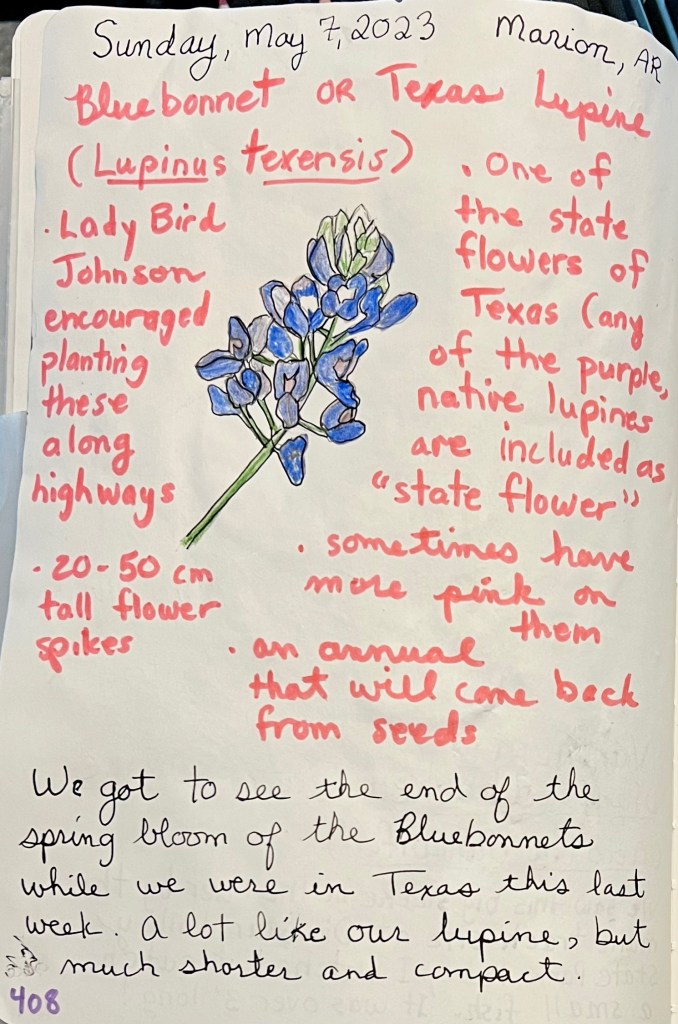 Sunday, May 7, 2023 Marion, AR
Bluebonnet OR Texas Lupine
(Lupinus texensis)
• Lady Bird
Johnson
encouraged
planting
these
along
highways
• 20-50 cm
tall flower
spikes
• One of
the state
flowers of
Texas (any
of the purple,
native lupines
are included as
"state flower"
• sometimes have
more pink on
them
• an annual
that will come back
from seeds
We got to see the end of the
spring bloom of the Bluebonnets
while we were in Texas this last
week. A lot like our lupine, but
much shorter and compact.
408